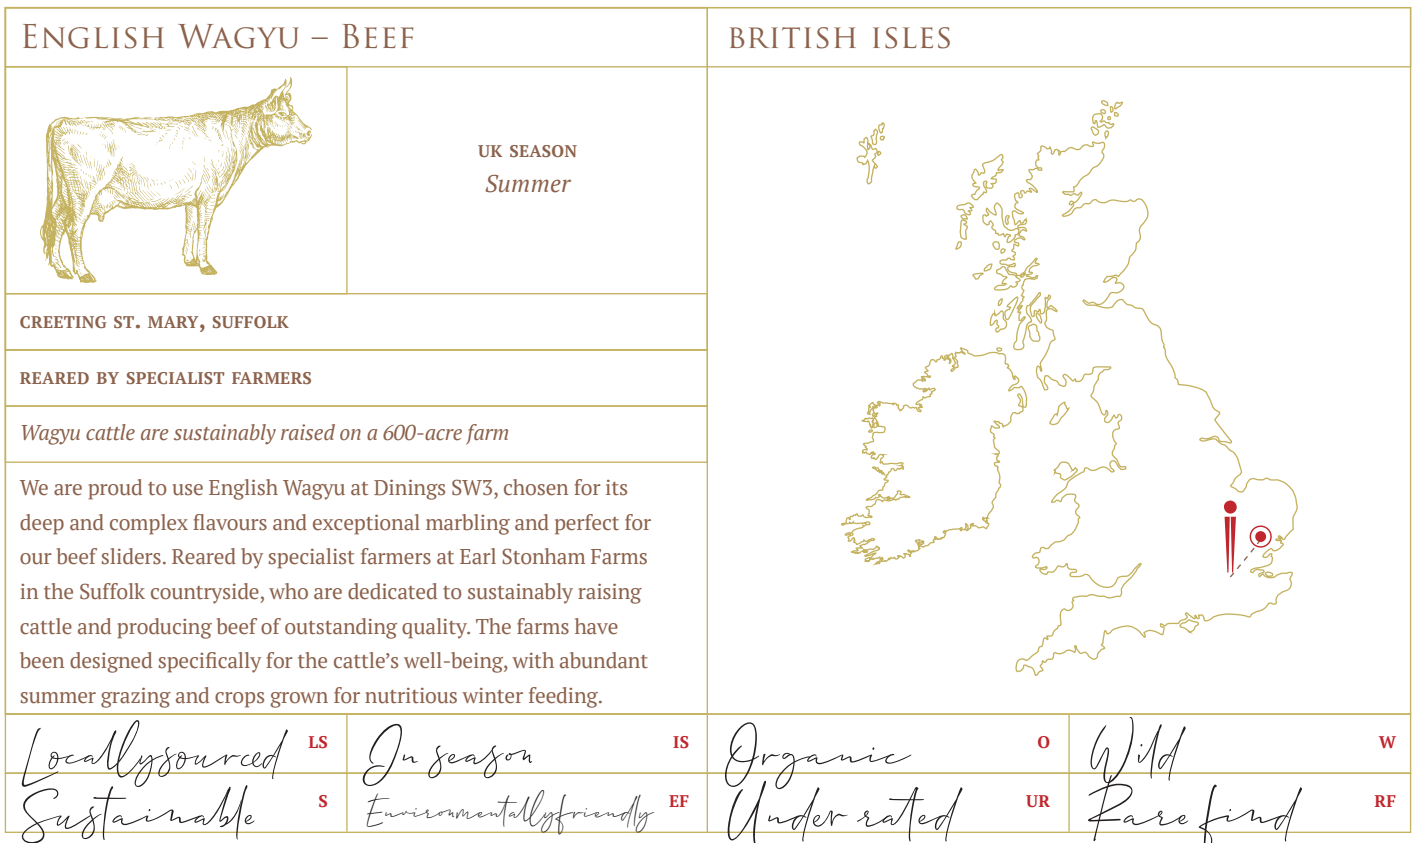 ENGLISH WAGYU – BEEF
BRITISH ISLES
UK SEASON
Summer
CREETING ST. MARY, SUFFOLK
REARED BY SPECIALIST FARMERS
Wagyu cattle are sustainably raised on a 600-acre farm
We are proud to use English Wagyu at Dinings SW3, chosen for its
deep and complex flavours and exceptional marbling and perfect for
our beef sliders. Reared by specialist farmers at Earl Stonham Farms
in the Suffolk countryside, who are dedicated to sustainably raising
cattle and producing beef of outstanding quality. The farms have
been designed specifically for the cattle's well-being, with abundant
summer grazing and crops grown for nutritious winter feeding.
Locally sourced LS
In season IS
Organic O
Wild W
Sustainable S
Environmentally friendly EF
Under rated UR
Rare find RF